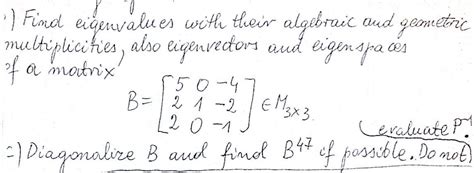 1) Find eigenvalues with their algebraic and geometric
multiplicities, also eigenvectors and eigenspaces
of a matrix
B = [5 0 -4
2 1 -2
2 0 -1] ∈ M3×3.
evaluate P⁻¹.
=) Diagonalize B and find B⁴⁷ if possible. (Do not)